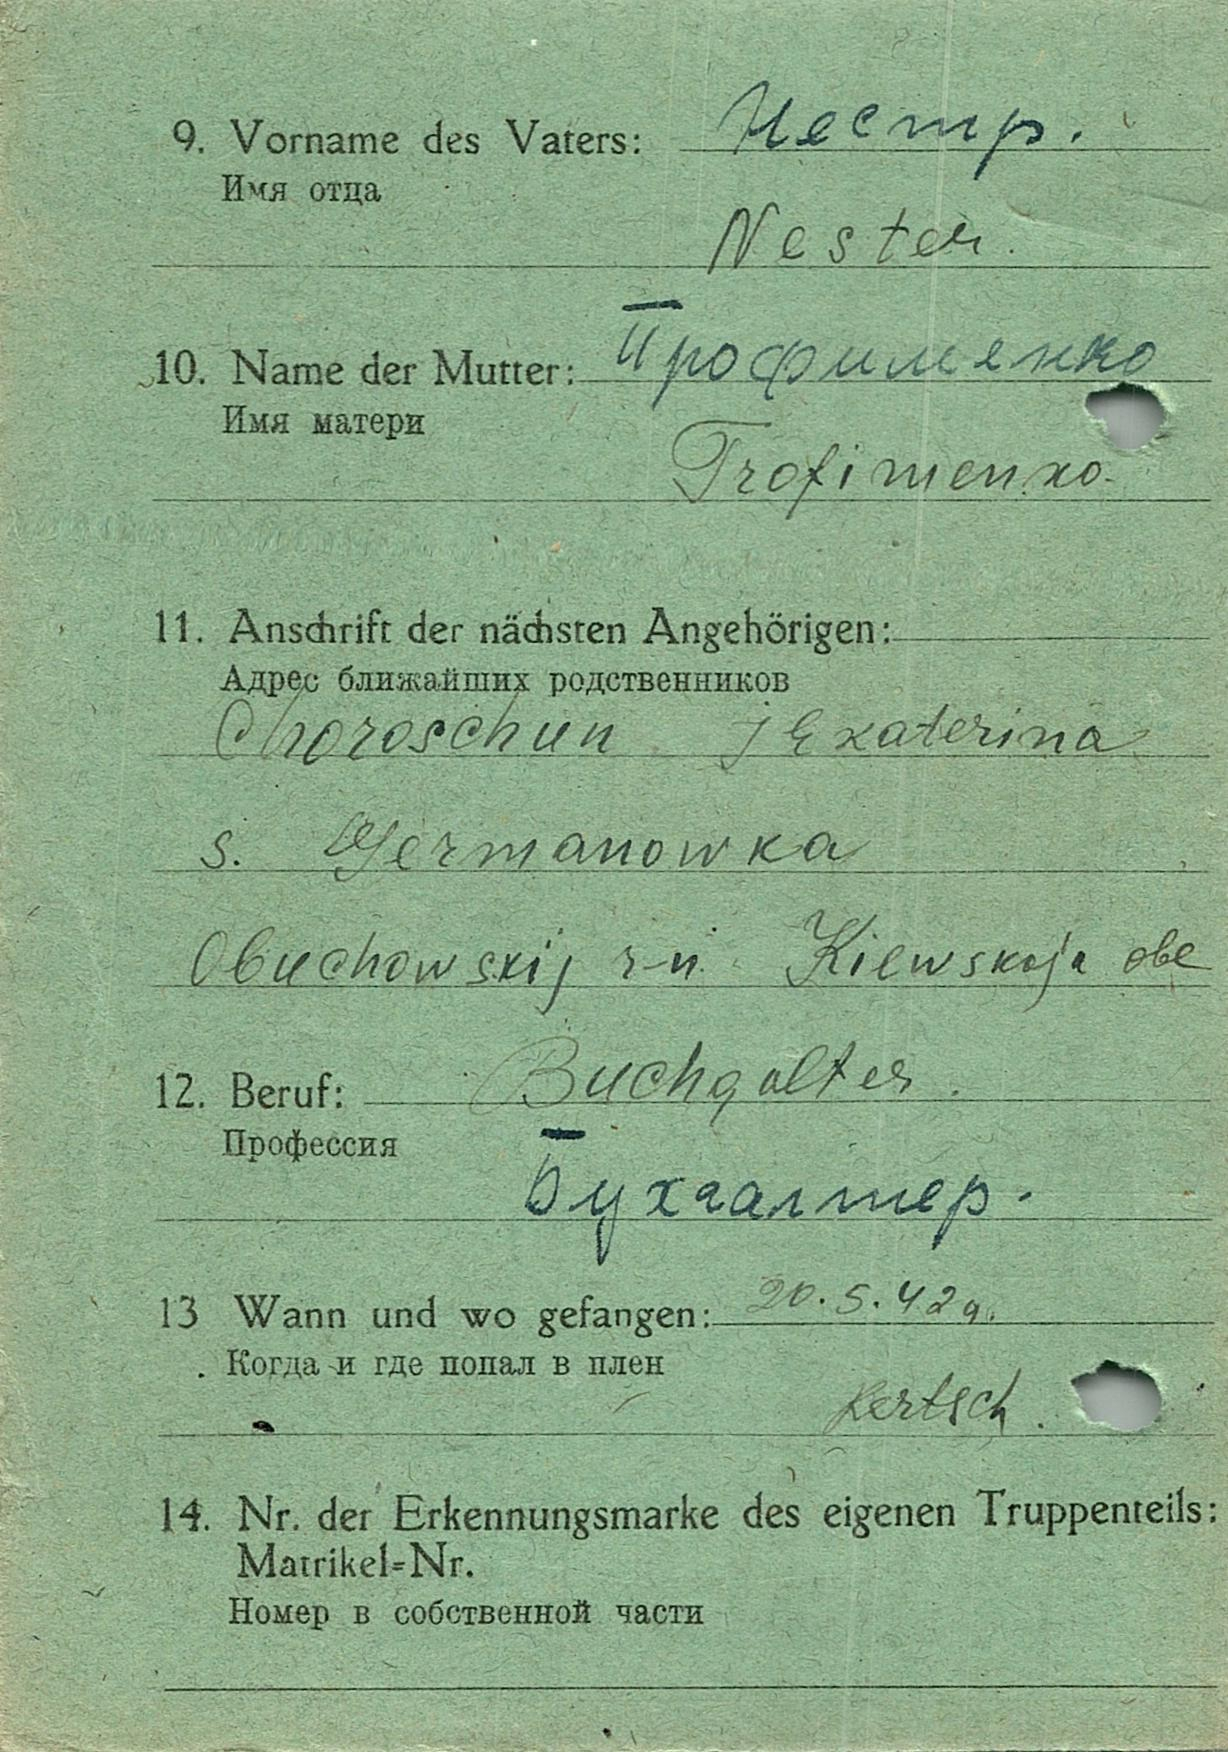 9. Vorname des Vaters: Нестр.
Имя отца
Nester.
10. Name der Mutter: Трофименко
Имя матери
Trofimenko.
11. Anschrift der nächsten Angehörigen:
Адрес ближайших родственников
Choroschun Jekaterina
s. Germanowka
Obuchowskij r-n. Kiewskaja obl
12. Beruf: Buchgalter.
Профессия
Бухгалтер.
13 Wann und wo gefangen: 20.5.42 g.
Когда и где попал в плен
Kertsch.
14. Nr. der Erkennungsmarke des eigenen Truppenteils:
Matrikel=Nr.
Номер в собственной части